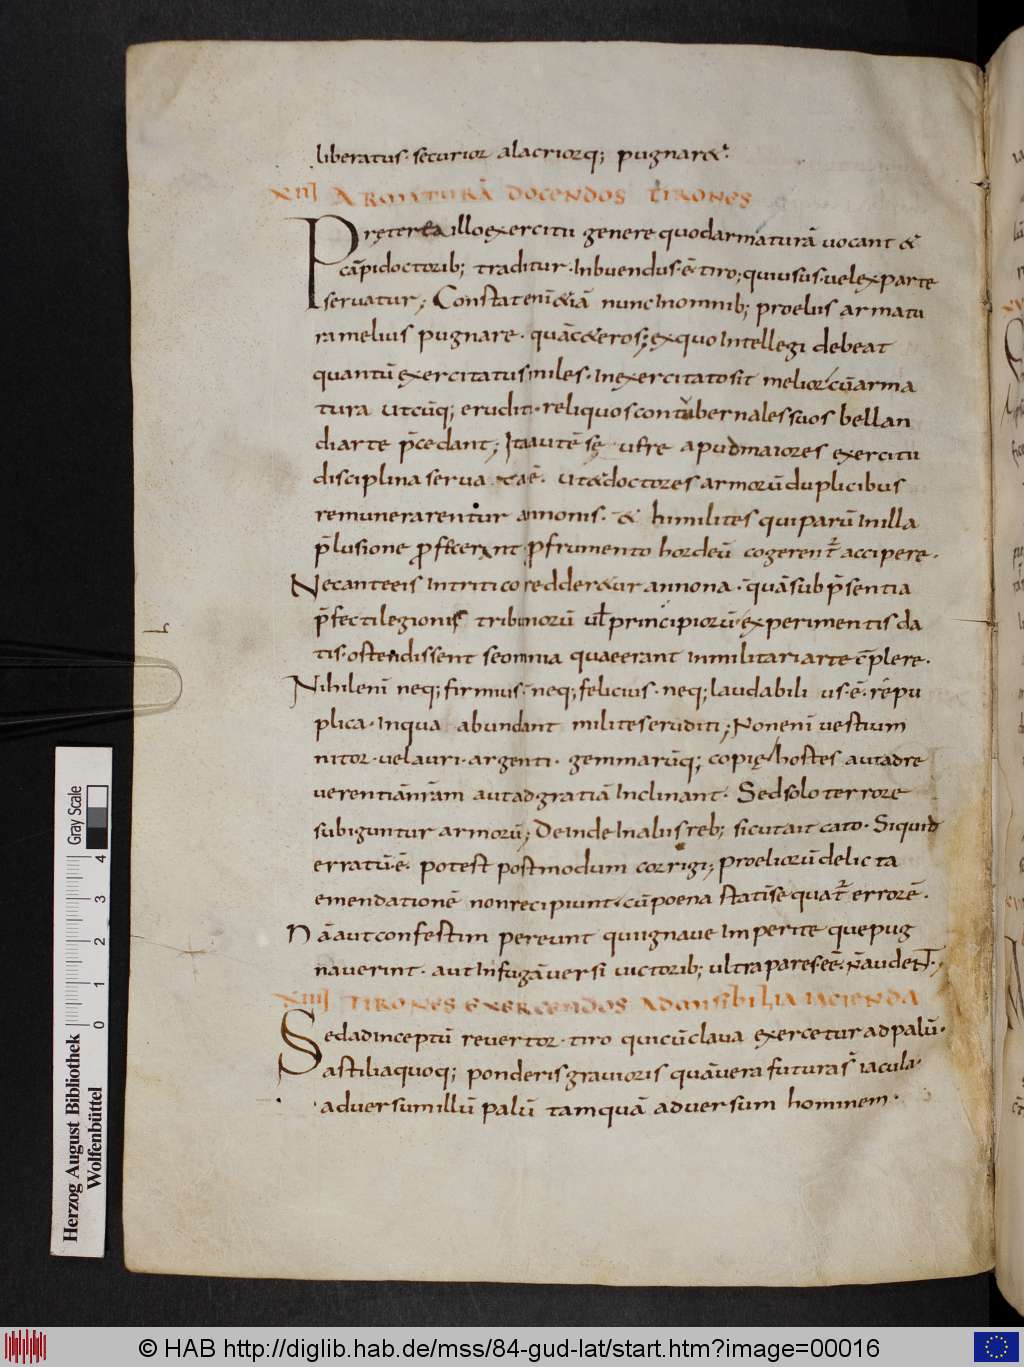 liberatus· securior alacriorq; pugnar&·
XIII ARMATURĀ DOCENDOS TIRONES
Pręterea illo exercitii genere quod armaturā uocant &
cāpidoctorib; traditur· Inbuendus·ē tiro; qui usus· uel ex parte
seruatur; Constat eni᷄ &iā nunc In omnib; proeliis armatu
ra melius pugnare· quā c&eros; ex quo Intellegi debeat
quantū exercitatus miles· Inexercitato sit melior· cū arma
tura utcūq; eruditi· reliquos contubernales suos bellan
di arte p̄cedant; Ita autē sę ufre apud maiores exercitii
disciplina serua ta ē· ut & doctores armorū duplicibus
remunerarentur annonis· & hi milites qui parū In illa
p̄lusione profecerant p frumento hordeū cogerent̄ accipere·
Nec ante eis In tritico redder&ur annona· quā sub p̄sentia
p̄fecti legionis tribunorū ul̄ principiorū· experimentis da
tis· ostendissent se omnia quae erant In militari arte c̄plere·
Nihil eni᷄ neq; firmius· neq; felicius· neq; laudabili us·ē· rēpu
plica· In qua abundant milites eruditi; Non eni᷄ uestium
nitor· uel auri· argenti· gemmarūq; copię hostes aut ad re
uerentiā nr̄am aut ad gratiā Inclinant· Sed solo terrore
subiguntur armorū; Deinde In aliis reb; sicut ait cato· Siquid
erratū·ē· potest postmodum corrigi; proeliorū delicta
emendationē non recipiunt· cū poena statī sequat̄ errorē·
Nā aut confestim pereunt qui ignaue Imperite que pug
nauerint· aut In fugā uersi uictorib; ultra pares eē· n̄ audeNT·
XIIII TIRONES EXERCENDOS AD MISIBILIA IACIENDA
Sed ad Inceptū reuertor· tiro qui cū claua exercetur ad palū·
astilia quoq; ponderis grauioris quā uera futura s̄ iacula·
aduersum illū palū tamquā aduersum hominem·
Gray Scale
0 1 2 3 4
Herzog August Bibliothek
Wolfenbüttel
© HAB http://diglib.hab.de/mss/84-gud-lat/start.htm?image=00016